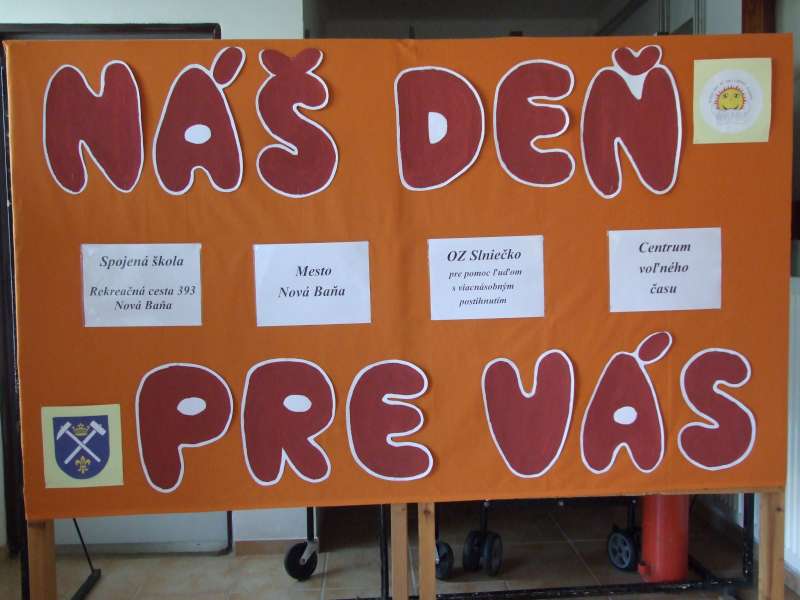 NÁŠ DEŇ
Spojená škola
Rekreačná cesta 393
Nová Baňa
Mesto
Nová Baňa
OZ Slniečko
pre pomoc ľuďom
s viacnásobným
postihnutím
Centrum
voľného
času
PRE VÁS